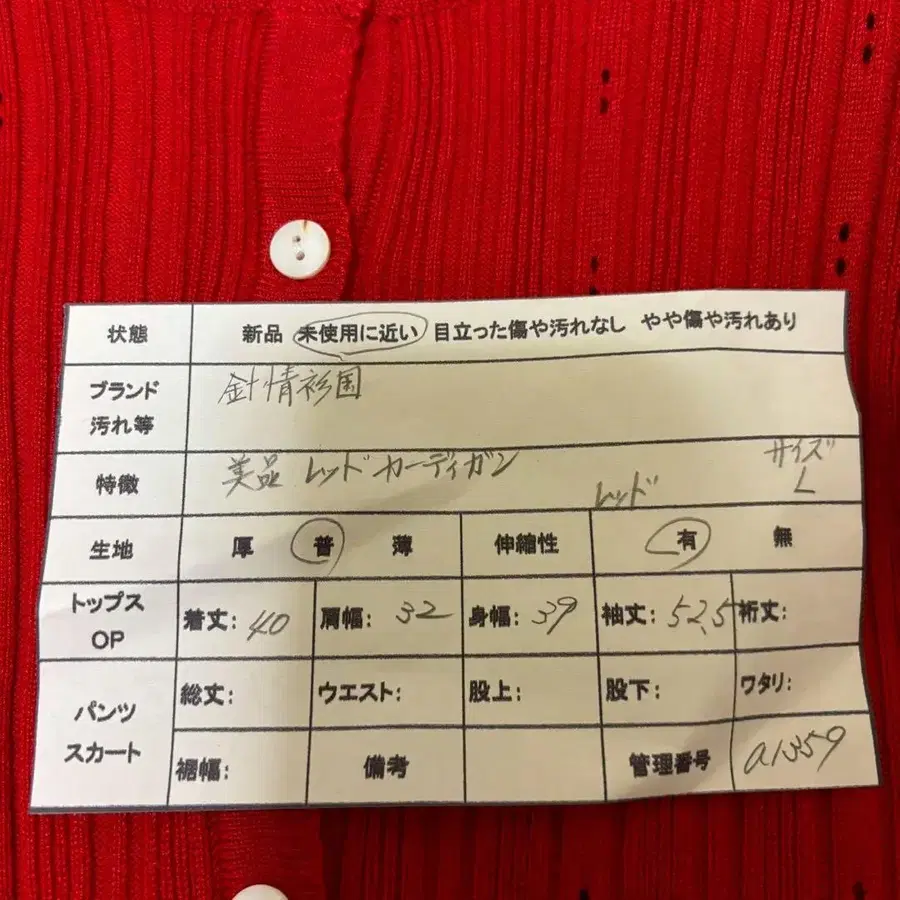 状態 新品 未使用に近い 目立った傷や汚れなし やや傷や汚れあり
ブランド 針情衫国
汚れ等
特徴 美品 レッドカーディガン レッド サイズ L
生地 厚 普 薄 伸縮性 有 無
トップス OP 着丈: 40 肩幅: 32 身幅: 39 袖丈: 52.5 裄丈:
パンツ スカート 総丈: ウエスト: 股上: 股下: ワタリ:
裾幅: 備考 管理番号 a1359